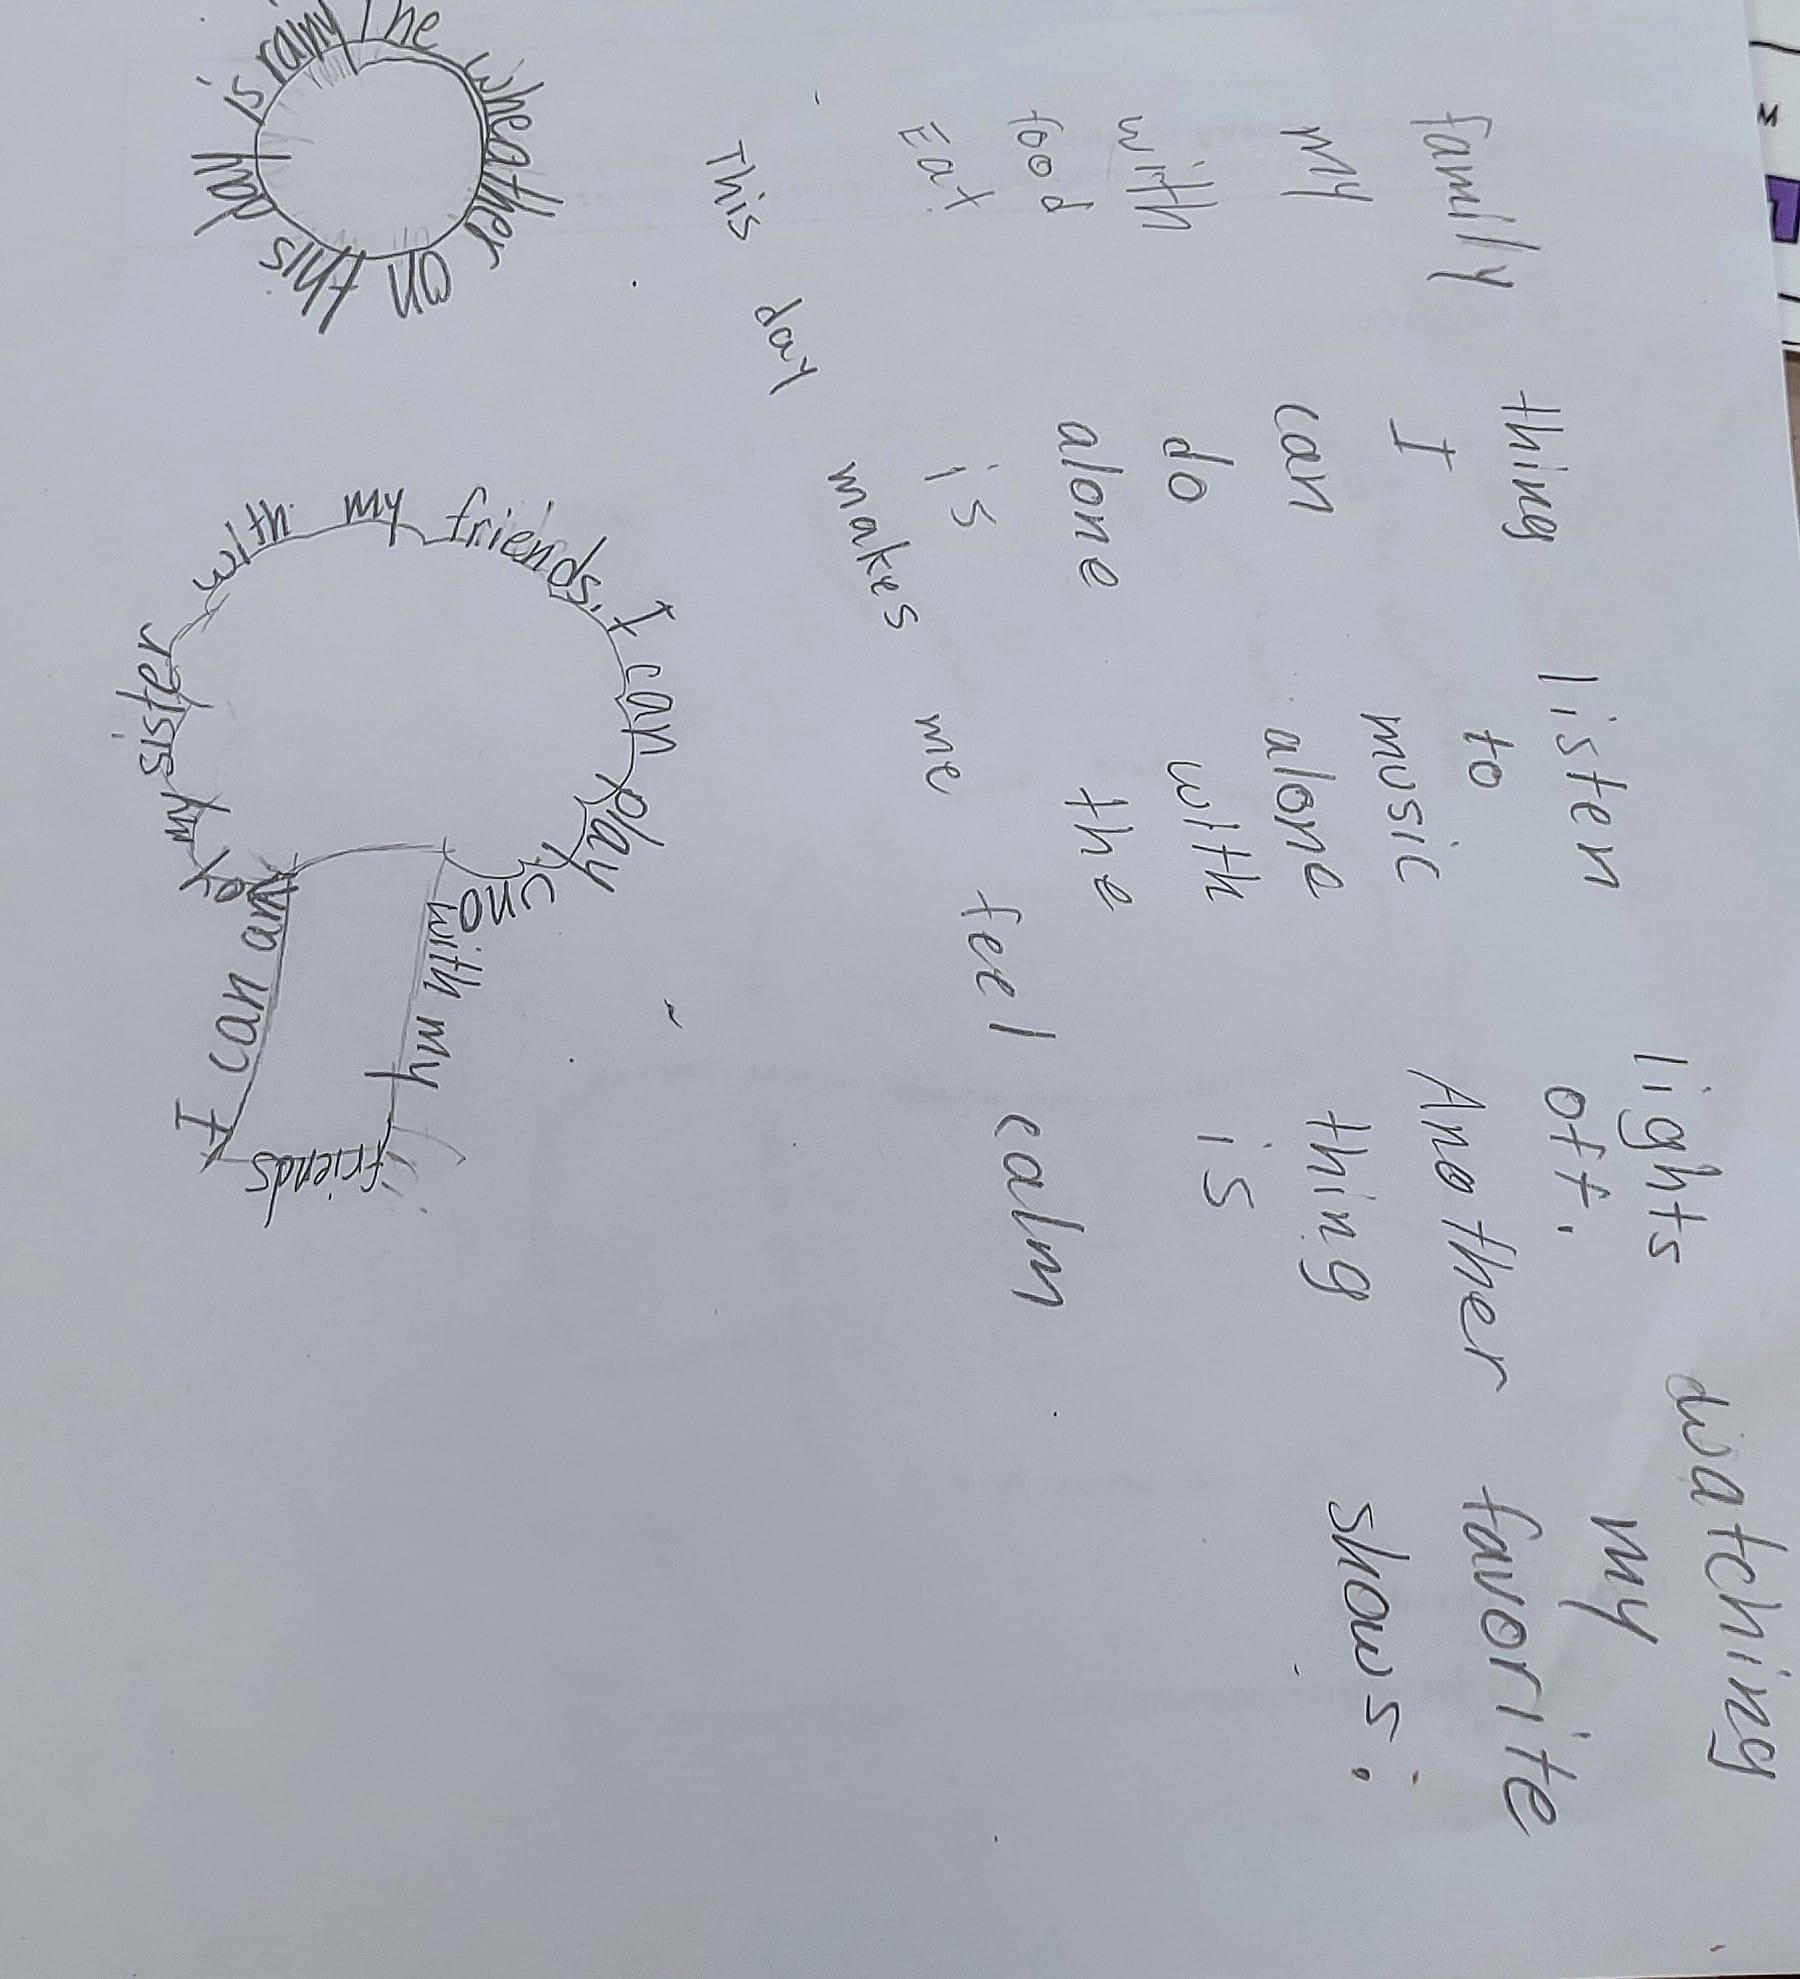 Eat
food
with
My
family
thing
I
can
do
alone
is
listen
to
music
alone
with
the
lights
off.
Another
thing
is
watching
my
favorite
shows.
This day makes me feel calm
The wheather on this day is rainy
I can anoy my sister with my friends. I can play uno with my friends